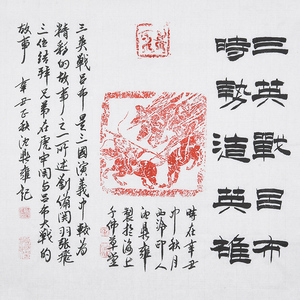 三英戰呂布
時勢造英雄
時在辛丑
中秋月
西泠印人
沈鼎雍
製於海上
千佛草堂
三英戰呂布是三國演義中較為
精彩的故事之一所述劉備關羽張飛
三位結拜兄弟在虎牢關與呂布大戰的
故事 辛丑之秋沈鼎雍記